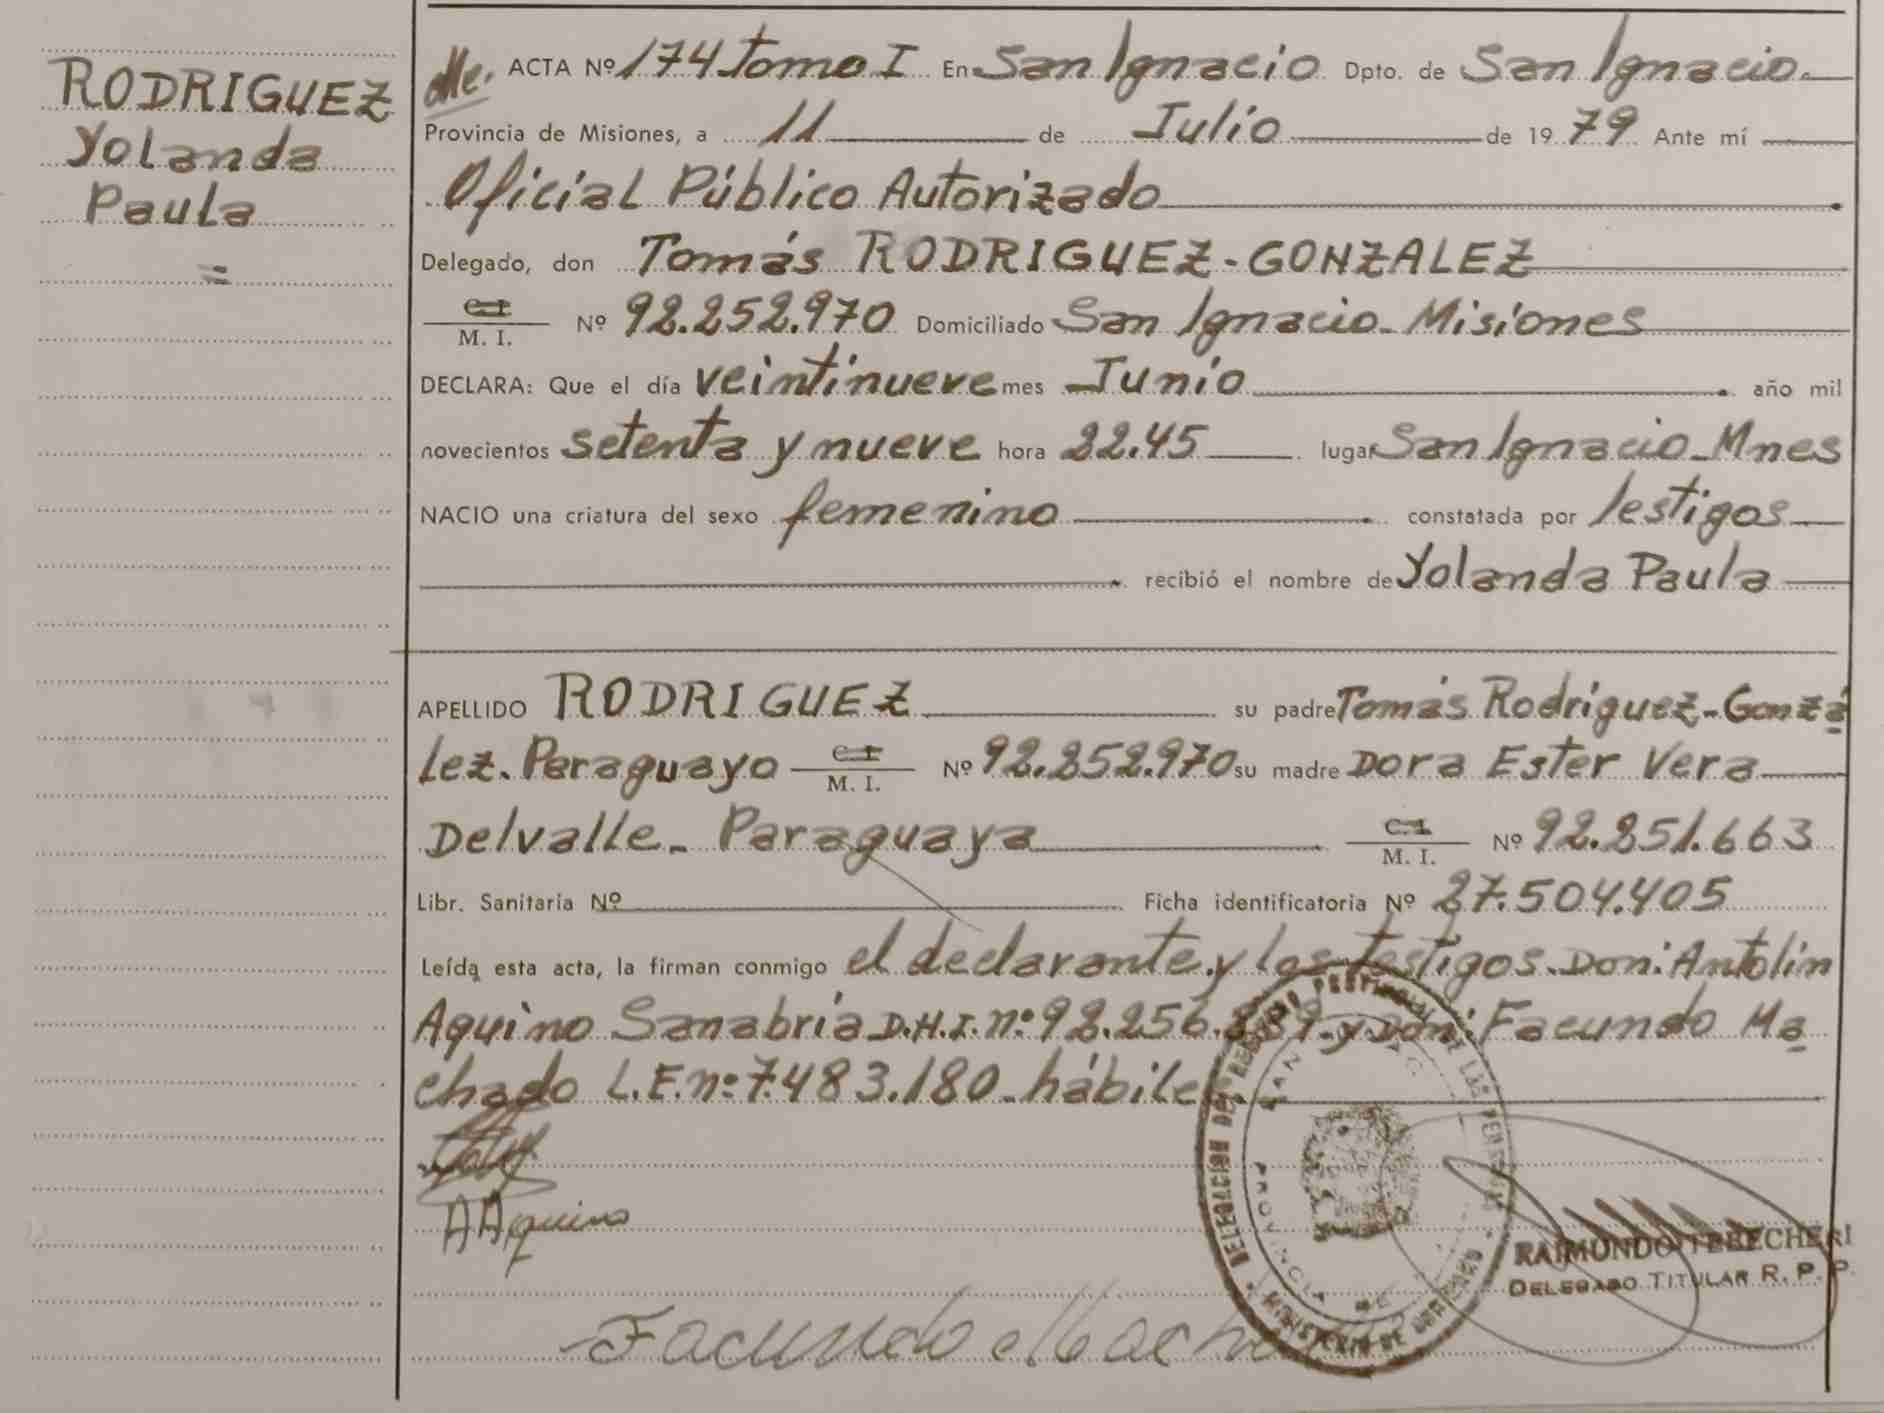 RODRIGUEZ
Yolanda
Paula
=
ACTA Nº 174 Tomo I En San Ignacio Dpto. de San Ignacio.
Provincia de Misiones, a 11 de Julio de 1979 Ante mí
Oficial Público Autorizado
Delegado, don Tomás RODRIGUEZ-GONZALEZ
C.I.
M. I. Nº 92.252.970 Domiciliado San Ignacio-Misiones
DECLARA: Que el día veintinueve mes Junio año mil
novecientos setenta y nueve hora 22.45 lugar San Ignacio-Mnes
NACIO una criatura del sexo femenino constatada por testigos
recibió el nombre de Yolanda Paula
APELLIDO RODRIGUEZ su padre Tomás Rodriguez-Gonzá
lez. Paraguayo C.I.
M. I. Nº 92.252.970 su madre Dora Ester Vera
Delvalle- Paraguaya C.I.
M. I. Nº 92.251.663
Libr. Sanitaria Nº Ficha identificatoria Nº 27.504.405
Leída esta acta, la firman conmigo el declarante y los testigos. Don: Antolin
Aquino Sanabria D.N.I. nº 92.256. y Don: Facundo Ma
chado L.E. nº 7.483.180-hábiles
AAquino
Facundo Macha
DELEGACION DEL REGISTRO DE LAS PERSONAS
SAN IGNACIO
PROVINCIA DE
MINISTERIO DE GOBIERNO
RAIMUNDO
DELEGADO TITULAR R. P. P.